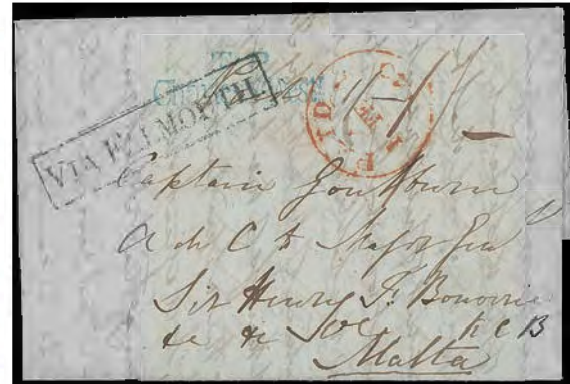 VIA FALMOUTH
PAID
Captain Goulburn
A de C to Major Gen
Sir Henry F. Bouverie
&c &c &c K C B
Malta